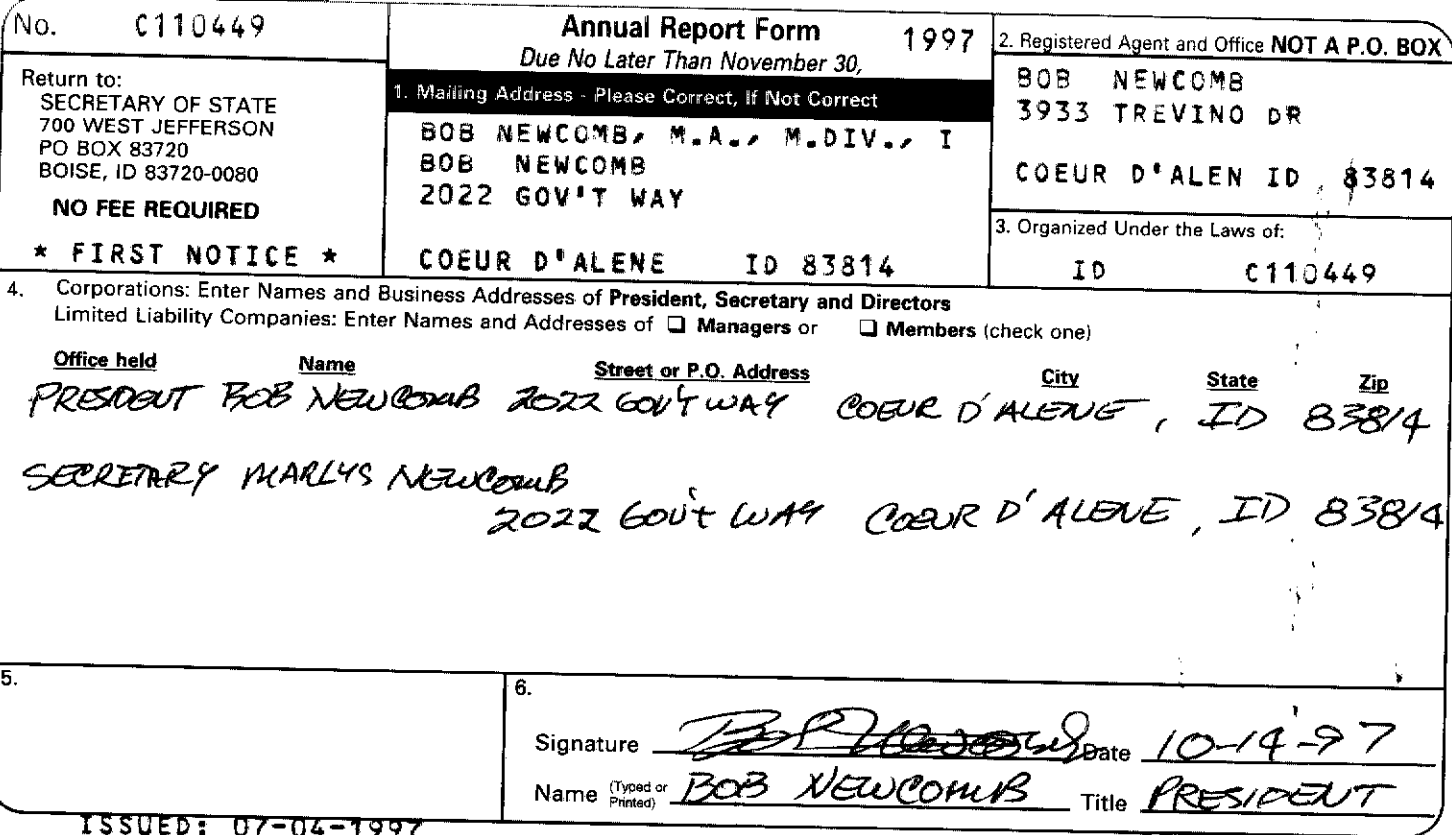 No. C110449
Return to:
SECRETARY OF STATE
700 WEST JEFFERSON
PO BOX 83720
BOISE, ID 83720-0080
NO FEE REQUIRED
* FIRST NOTICE *
Annual Report Form 1997
Due No Later Than November 30,
1. Mailing Address - Please Correct, If Not Correct
BOB NEWCOMB, M.A., M.DIV., I
BOB NEWCOMB
2022 GOV'T WAY
COEUR D'ALENE ID 83814
2. Registered Agent and Office NOT A P.O. BOX
BOB NEWCOMB
3933 TREVINO DR
COEUR D'ALEN ID 83814
3. Organized Under the Laws of:
ID C110449
4. Corporations: Enter Names and Business Addresses of President, Secretary and Directors
Limited Liability Companies: Enter Names and Addresses of ❑ Managers or ❑ Members (check one)
Office held Name Street or P.O. Address City State Zip
PRESIDENT BOB NEWCOMB 2022 GOV'T WAY COEUR D'ALENE, ID 83814
SECRETARY MARLYS NEWCOMB
2022 GOV'T WAY COEUR D'ALENE, ID 83814
5.
6.
Signature Bob Newcomb Date 10-14-97
Name (Typed or Printed) BOB NEWCOMB Title PRESIDENT
ISSUED: 07-04-1997